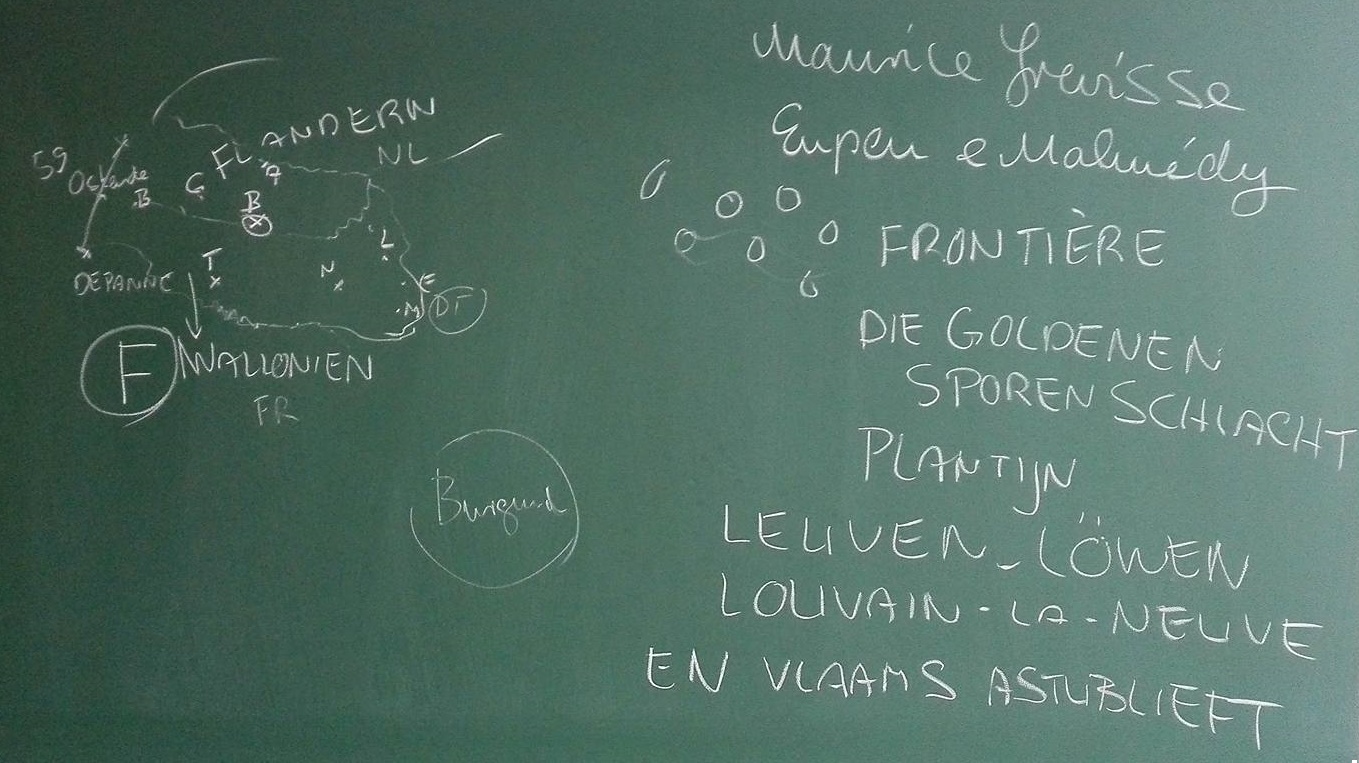 Maurice Grevisse
Eupen e Malmédy
FRONTIÈRE
DIE GOLDENEN
SPOREN SCHLACHT
PLANTIJN
LEUVEN - LÖWEN
LOUVAIN-LA-NEUVE
EN VLAAMS ASTUBLIEFT
FLANDERN
NL
59
Ostende
B
G
A
B
L
T
N
E
M
DT
DEPANNE
F
WALLONIEN
FR
Burgund